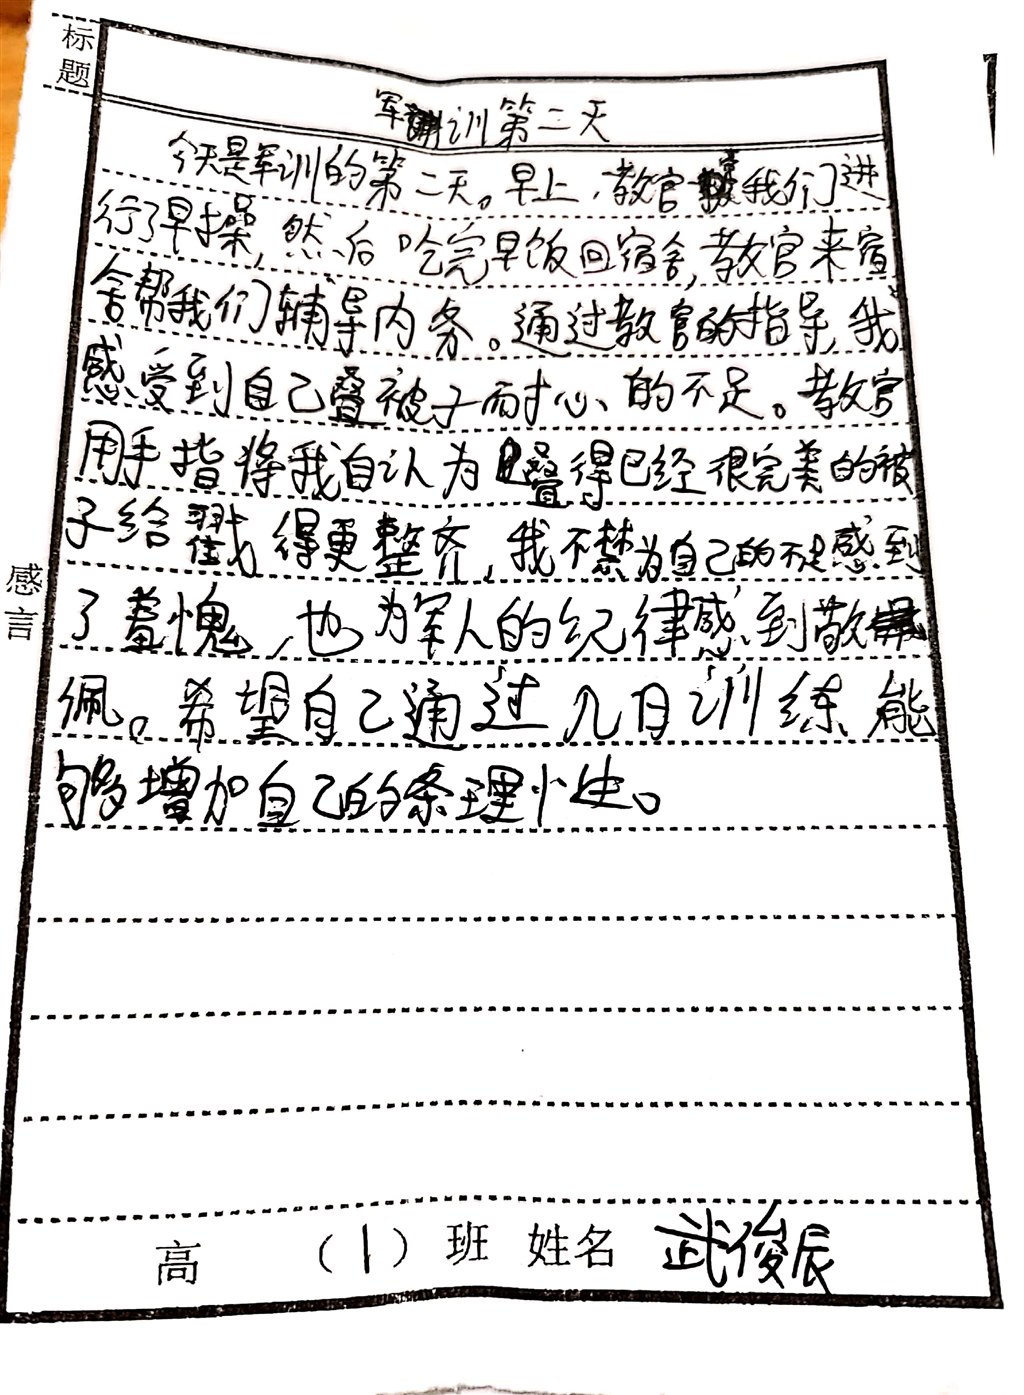 标题
军训第二天
今天是军训的第二天。早上,教官带我们进
行了早操,然后吃完早饭回宿舍,教官来宿
舍帮我们辅导内务。通过教官的指导,我
感受到自己叠被子耐心的不足。教官
用手指将我自认为叠得已经很完美的被
子给戳得更整齐,我不禁为自己的不足感到
了羞愧,也为军人的纪律感到敬
佩。希望自己通过几日训练能
够增加自己的条理性。
感言
高 (1)班 姓名 武俊辰